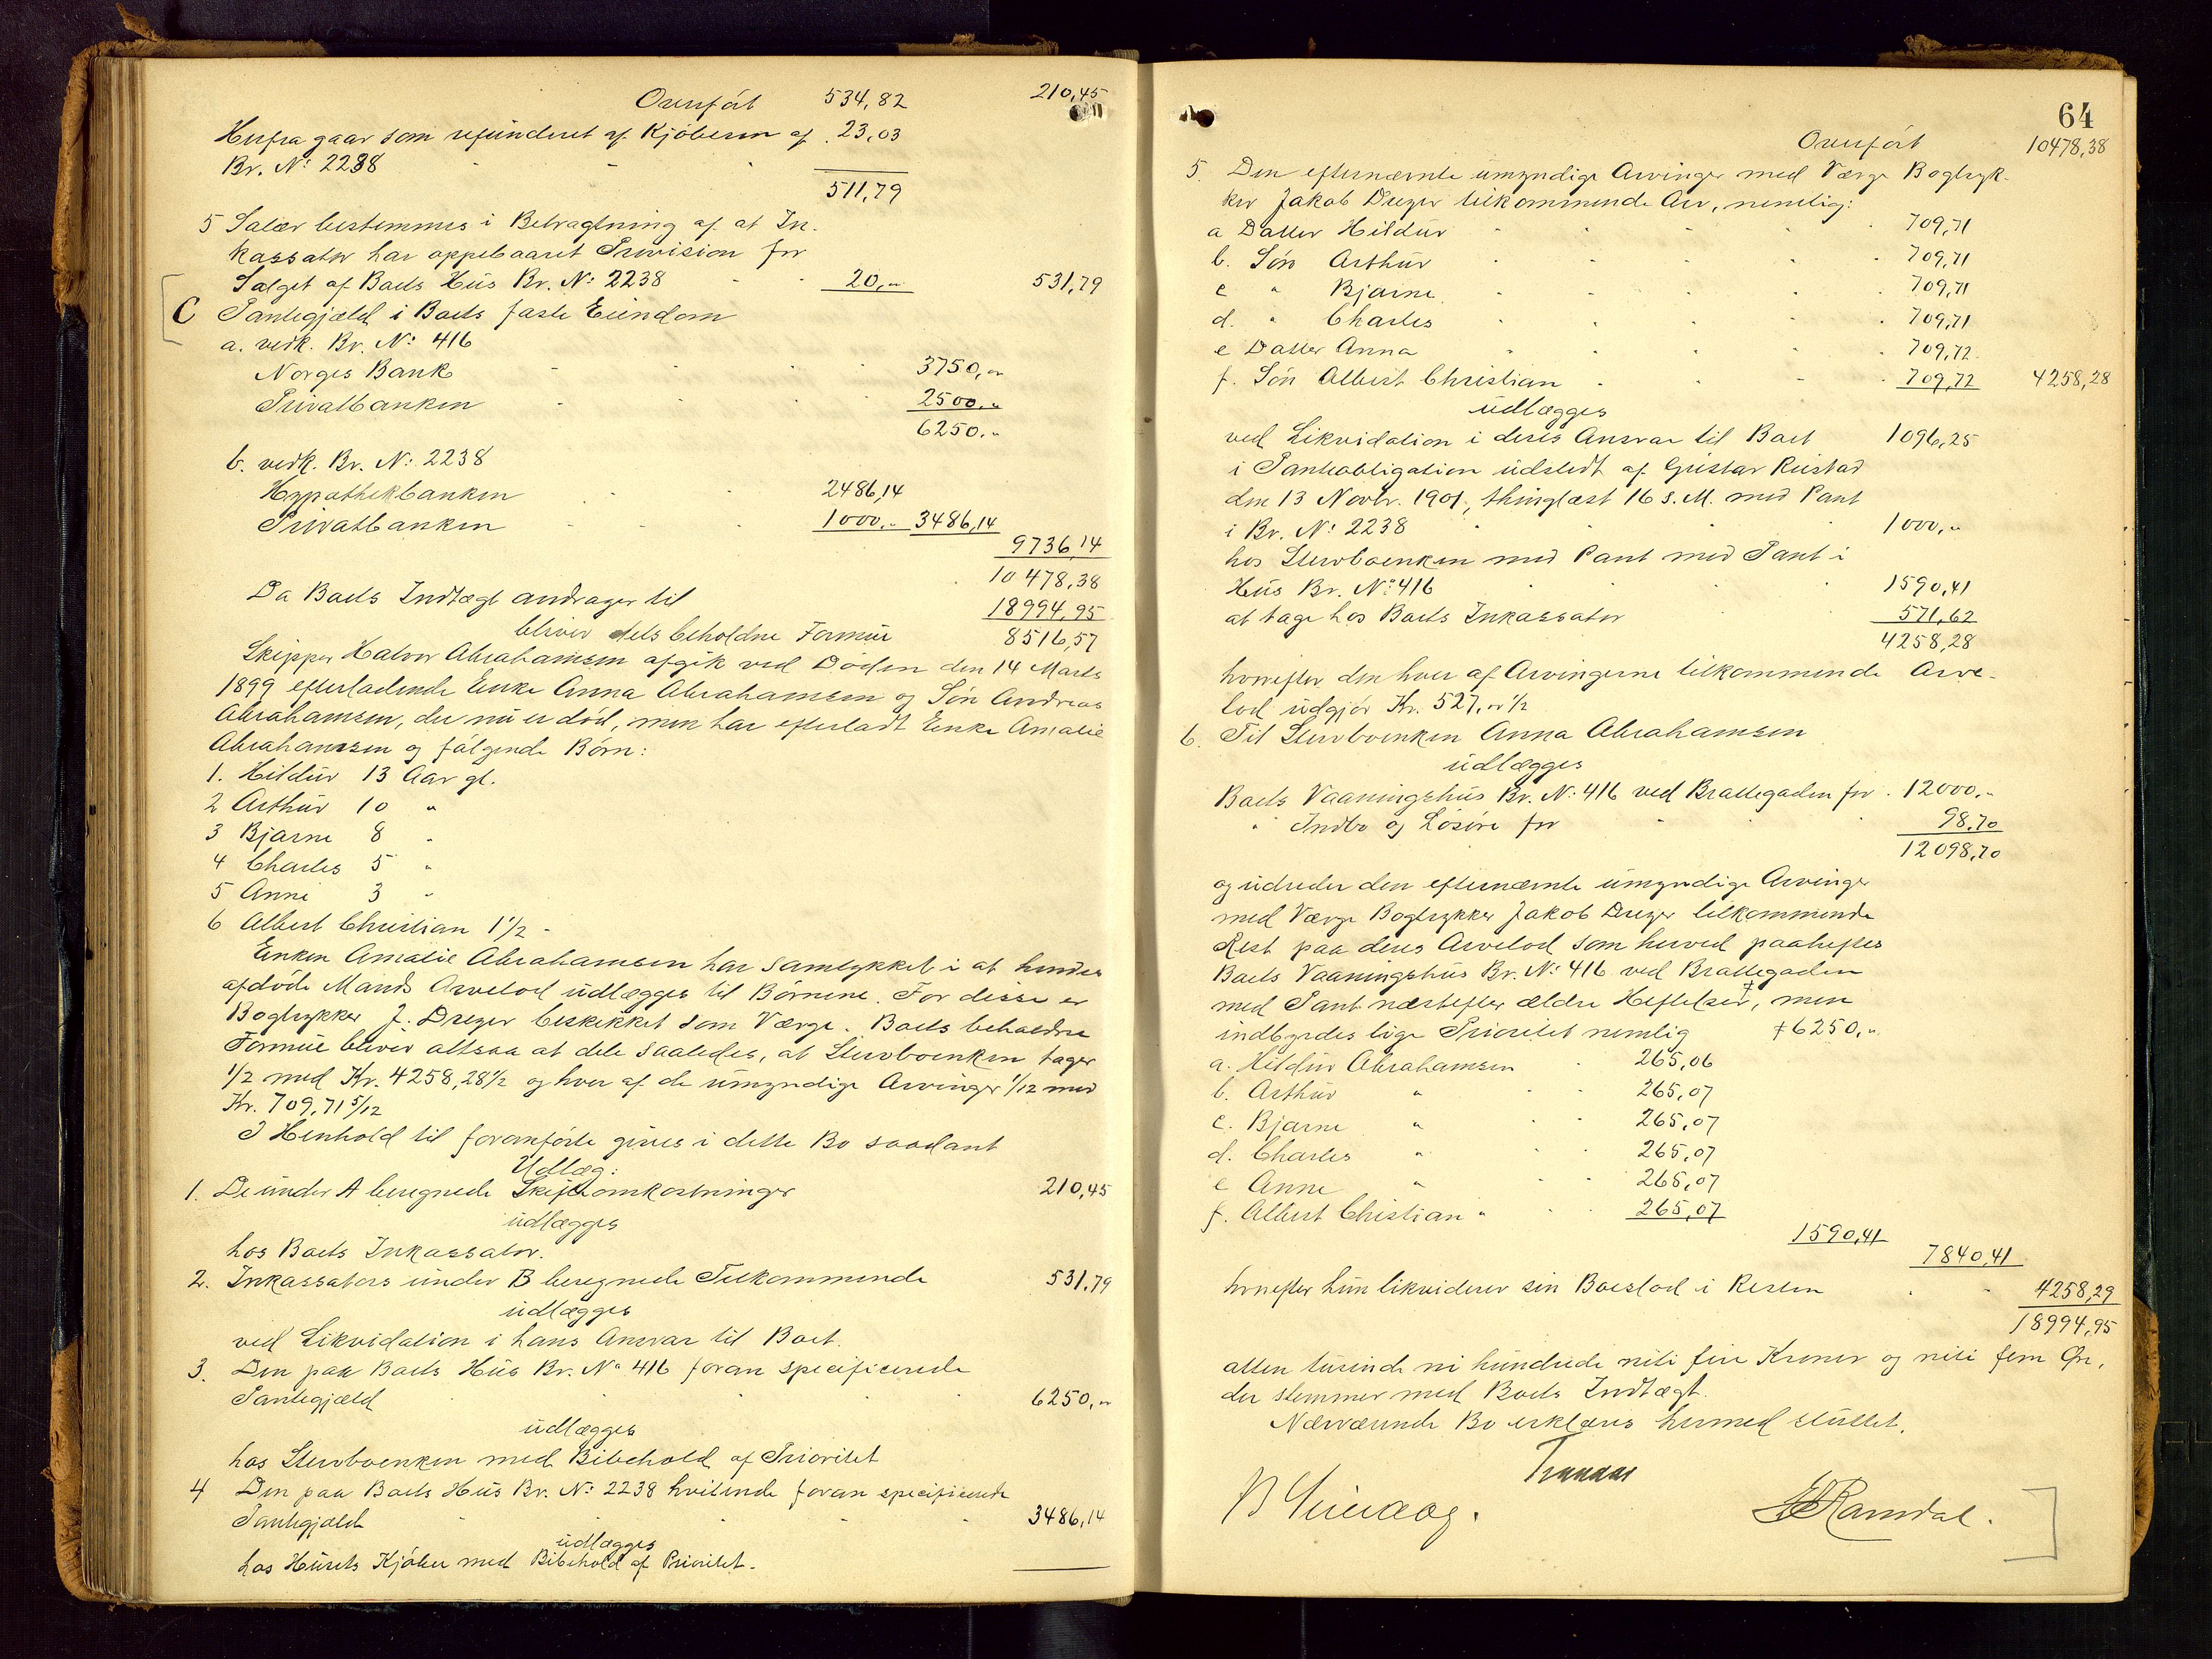 Overført 534,82 210,45
Herfra gaar som refunderet af Kjøberen af 23,03
Br. No: 2238
511,79
5 Salær bestemmes i Betragtning af at In-
kassator har oppebaaret Provision for
Salget af Boets Hus Br. No: 2238 20,- 531,79
C Pantegjæld i Boets faste Eiendom
a. vedk. Br. No: 416
Norges Bank 3750,-
Privatbanken 2500,-
6250,-
b. vedk. Br. No: 2238
Hypothekbanken 2486,14
Privatbanken 1000,- 3486,14
9736,14
10478,38
Da Boets Indtægt andrager til 18994,95
bliver dets beholdne Formue 8516,57
Skipper Halvor Abrahamsen afgik ved Døden den 14 Marts
1899 efterladende Enke Anna Abrahamsen og Søn Andreas
Abrahamsen, der nu er død, men har efterladt Enke Amalie
Abrahamsen og følgende Børn:
1. Hildur 13 Aar gl.
2 Arthur 10 "
3 Bjarne 8 "
4 Charles 5 "
5 Anne 3 "
6 Albert Christian 1 1/2 -
Enken Amalie Abrahamsen har samtykket i at hendes
afdøde Mands Arvelod udlægges til Børnene. For disse er
Bogtrykker J. Dreyer beskikket som Værge. Boets beholdne
Formue bliver altsaa at dele saaledes, at Stervboenken tager
1/2 med Kr. 4258,28 1/2 og hver af de umyndige Arvinger 1/12 med
Kr. 709,71 5/12
I Henhold til foranførte gives i dette Bo saadant
Udlæg:
1. De under A beregnede Skifteomkostninger 210,45
udlægges
hos Boets Inkassator.
2. Inkassators under B beregnede Tilkommende 531,79
udlægges
ved Likvidation i hans Ansvar til Boet.
3. Den paa Boets Hus Br. No 416 foran specificerede
Pantegjæld 6250,-
udlægges
hos Stervboenken med Bibehold af Prioritet
4 Den paa Boets Hus Br. No: 2238 hvilende foran specificerede
Pantegjæld 3486,14
udlægges
hos Husets Kjøber med Bibehold af Prioritet.
64
Overført 10478,38
5. Den efternævnte umyndige Arvinger med Værge Bogtryk-
ker Jakob Dreyer tilkommende Arv, nemlig:
a Datter Hildur 709,71
b. Søn Arthur 709,71
c " Bjarne 709,71
d. " Charles 709,71
e Datter Anna 709,72
f. Søn Albert Christian 709,72 4258,28
udlægges
ved Likvidation i deres Ansvar til Boet 1096,25
i Pantobligation udstedt af Gustav Rustad
den 13 Novbr. 1901, thinglæst 16 s. M. med Pant
i Br. No: 2238 1000,-
hos Stervboenken med Pant med Pant i
Hus Br. No: 416 1590,41
at tage hos Boets Inkassator 571,62
4258,28
hvorefter den hver af Arvingerne tilkommende Arve-
lod udgjør Kr. 527,- 1/2
6. Til Stervboenken Anna Abrahamsen
udlægges
Boets Vaaningshus Br. No: 416 ved Brattegaden for 12000,-
" Indbo og Løsøre for 98,70
12098,70
og udreder den efternævnte umyndige Arvinger
med Værge Bogtrykker Jakob Dreyer tilkommende
Rest paa deres Arvelod som herved paaheftes
Boets Vaaningshus Br. No: 416 ved Brattegaden
med Pant næstefter ældre Heftelser ‡, men
indbyrdes lige Prioritet nemlig ‡ 6250,-
a. Hildur Abrahamsen 265,06
b. Arthur " 265,07
c. Bjarne " 265,07
d. Charles " 265,07
e Anne " 265,07
f. Albert Christian " 265,07
1590,41
7840,41
hvorefter hun likviderer sin Boeslod i Resten 4258,29
18994,95
atten tusinde ni hundrede niti fire Kroner og niti fem Øre,
der stemmer med Boets Indtægt.
Nærværende Bo erklæres hermed sluttet.
Ramdal.